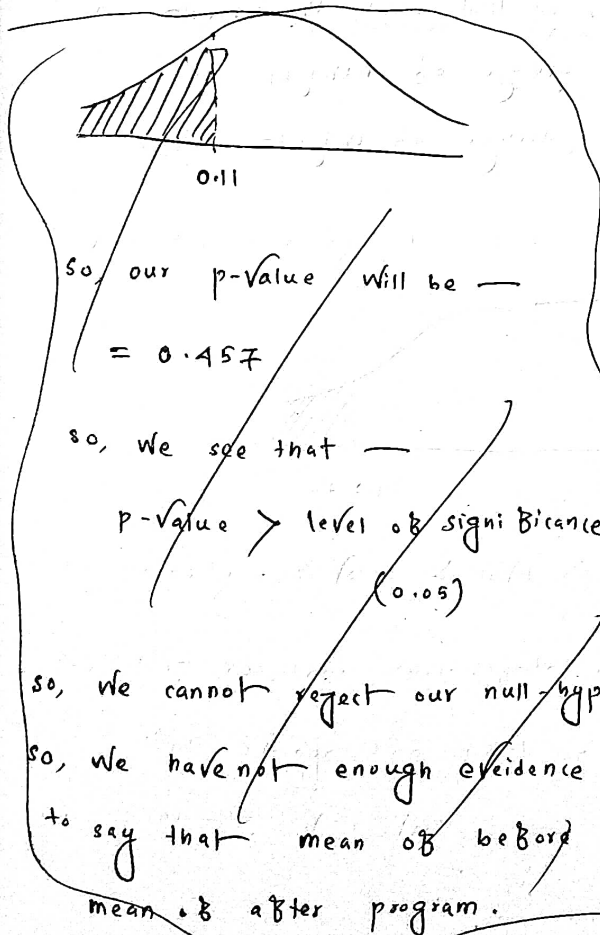 0.11
so, our p-value will be —
= 0.457
so, we see that —
p-value > level of significance
(0.05)
so, we cannot reject our null-hyp
so, we have not enough eveidence
to say that mean of before
mean of after program.